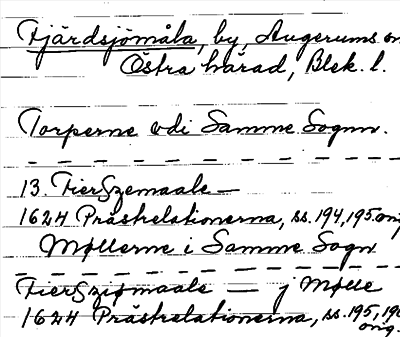 Fjärdsjömåla, by, Augerums sn
Östra härad, Blek. l.
Torperne vdi Samme Sognn.
13. Fierszemaale —
1624 Prästrelationerna, ss. 194, 195 orig.
Møllerne i Samme Sogn
Fiersziømaale — j Mølle
1624 Prästrelationerna, ss. 195, 196
orig.